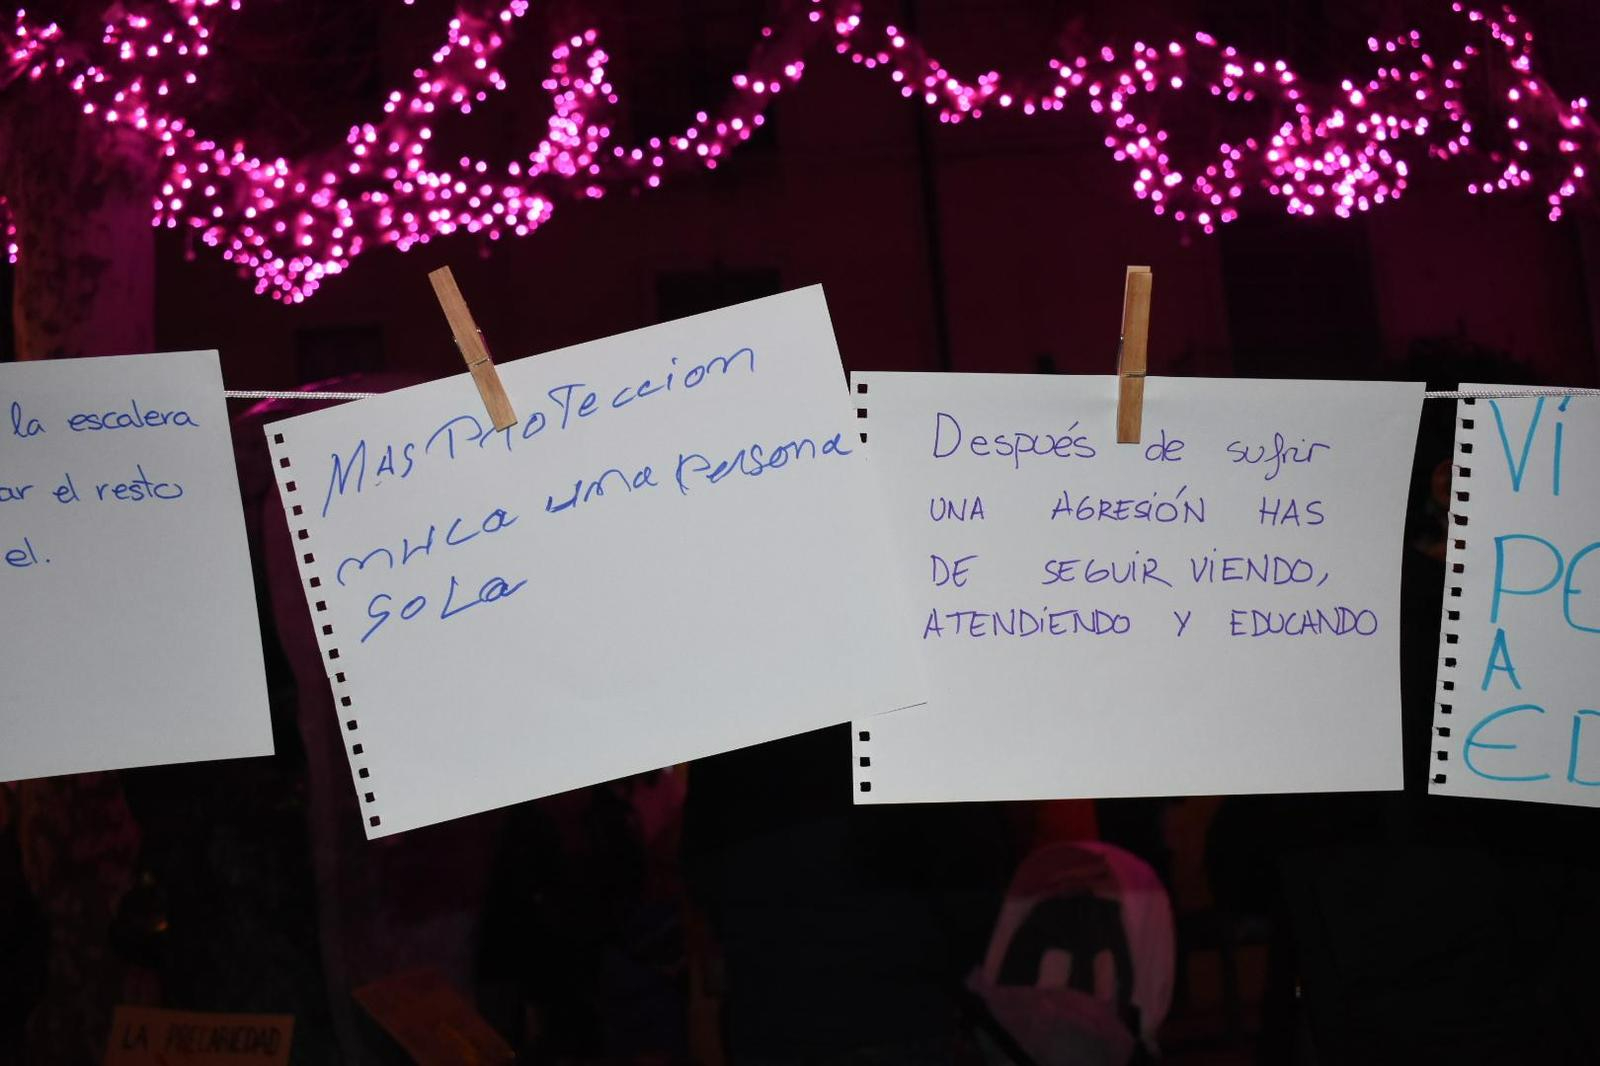 la escalera
ar el resto
el.
MAS PROTECCION
NUCA una persona
SOLA
Después de sufrir
UNA AGRESIÓN HAS
DE SEGUIR VIENDO,
ATENDIENDO Y EDUCANDO
VI
PE
A
ED
LA PRECARIEDAD